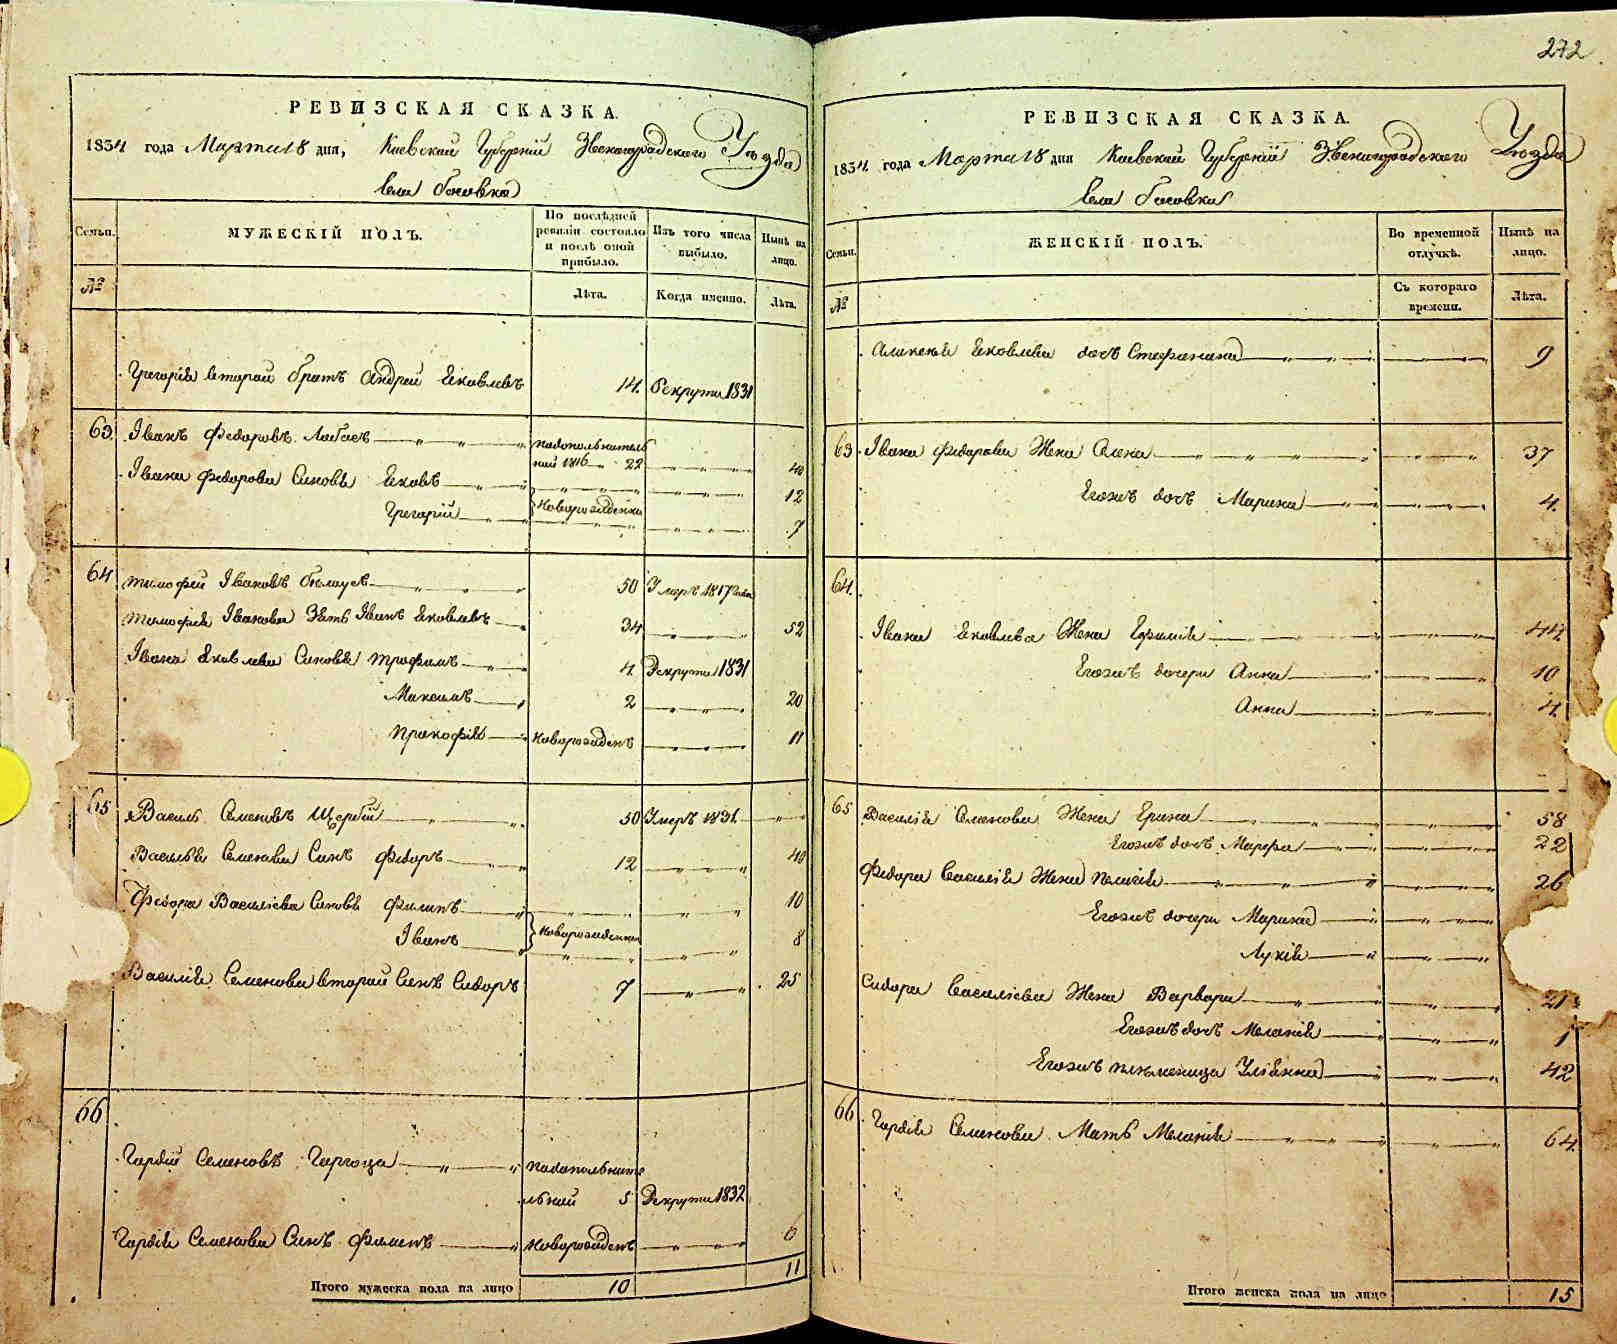 272
РЕВИЗСКАЯ СКАЗКА.
1834 года Марта 18 дня, Киевской Губернии Звенигородского Уѣзда
села Босовка
Семьи.
МУЖЕСКІЙ ПОЛЪ.
По послѣдней ревизіи состояло и послѣ оной прибыло.
Изъ того числа выбыло.
Нынѣ на лицо.
№
Лѣта.
Когда именно.
Лѣта.
Григорія второй братъ Андрей Яковлевъ 14. Рекрутъ 1831
63. Іванъ Федоровъ
1816 22 40
Івана Федорова Сыновъя Яковъ 12
Григорій Новорожденни 7
64 Тимофей Івановъ Билоусъ 50 Умеръ 1817 года
Тимофея Іванова Зять Іванъ Яковлевъ 34 52
Івана Яковлева Сыновъя Трофимъ 4 Рекрутъ 1831
Максимъ 2 20
Прокофій Новорожденъ 11
65 Василь Семеновъ Щербій 50 Умеръ 1831
Василія Семенова Сынъ Федоръ 12 40
Федора Василіева Сыновъя Филипъ 10
Іванъ Новорожденни 8
Василія Семенова второй Сынъ Сидоръ 7 25
66
Гордій Семеновъ
5 Рекрутъ 1832
Гордія Семенова Сынъ Филипъ Новорожденъ 6
Итого мужеска пола на лицо 10 11
РЕВИЗСКАЯ СКАЗКА.
1834 года Марта 18 дня Киевской Губерніи Звенигородского Уѣзда
села Босовка
Семьи.
ЖЕНСКІЙ ПОЛЪ.
Во временной отлучкѣ.
Нынѣ на лицо.
№
Съ котораго времени.
Лѣта.
Яковлева дочь Стефанида 9
63 Івана Федорова Жена Олена 37
Егожъ дочь Марина 4
64.
Івана Яковлева Жена Ефимія 44
Егожъ дочери Анна 10
Анна 4
65 Василія Семенова Жена Ирина 58
Егожъ дочь Марфа 22
Федора Василія Жена Пелагія 26
Егожъ дочери Марина
Лукія
Сидора Василіева Жена Варвара 21
Егожъ дочь Меланія 1
Егожъ племеница Уліянна 42
66 Гордія Семенова Мать Меланія 64
Итого женска пола на лицо 15